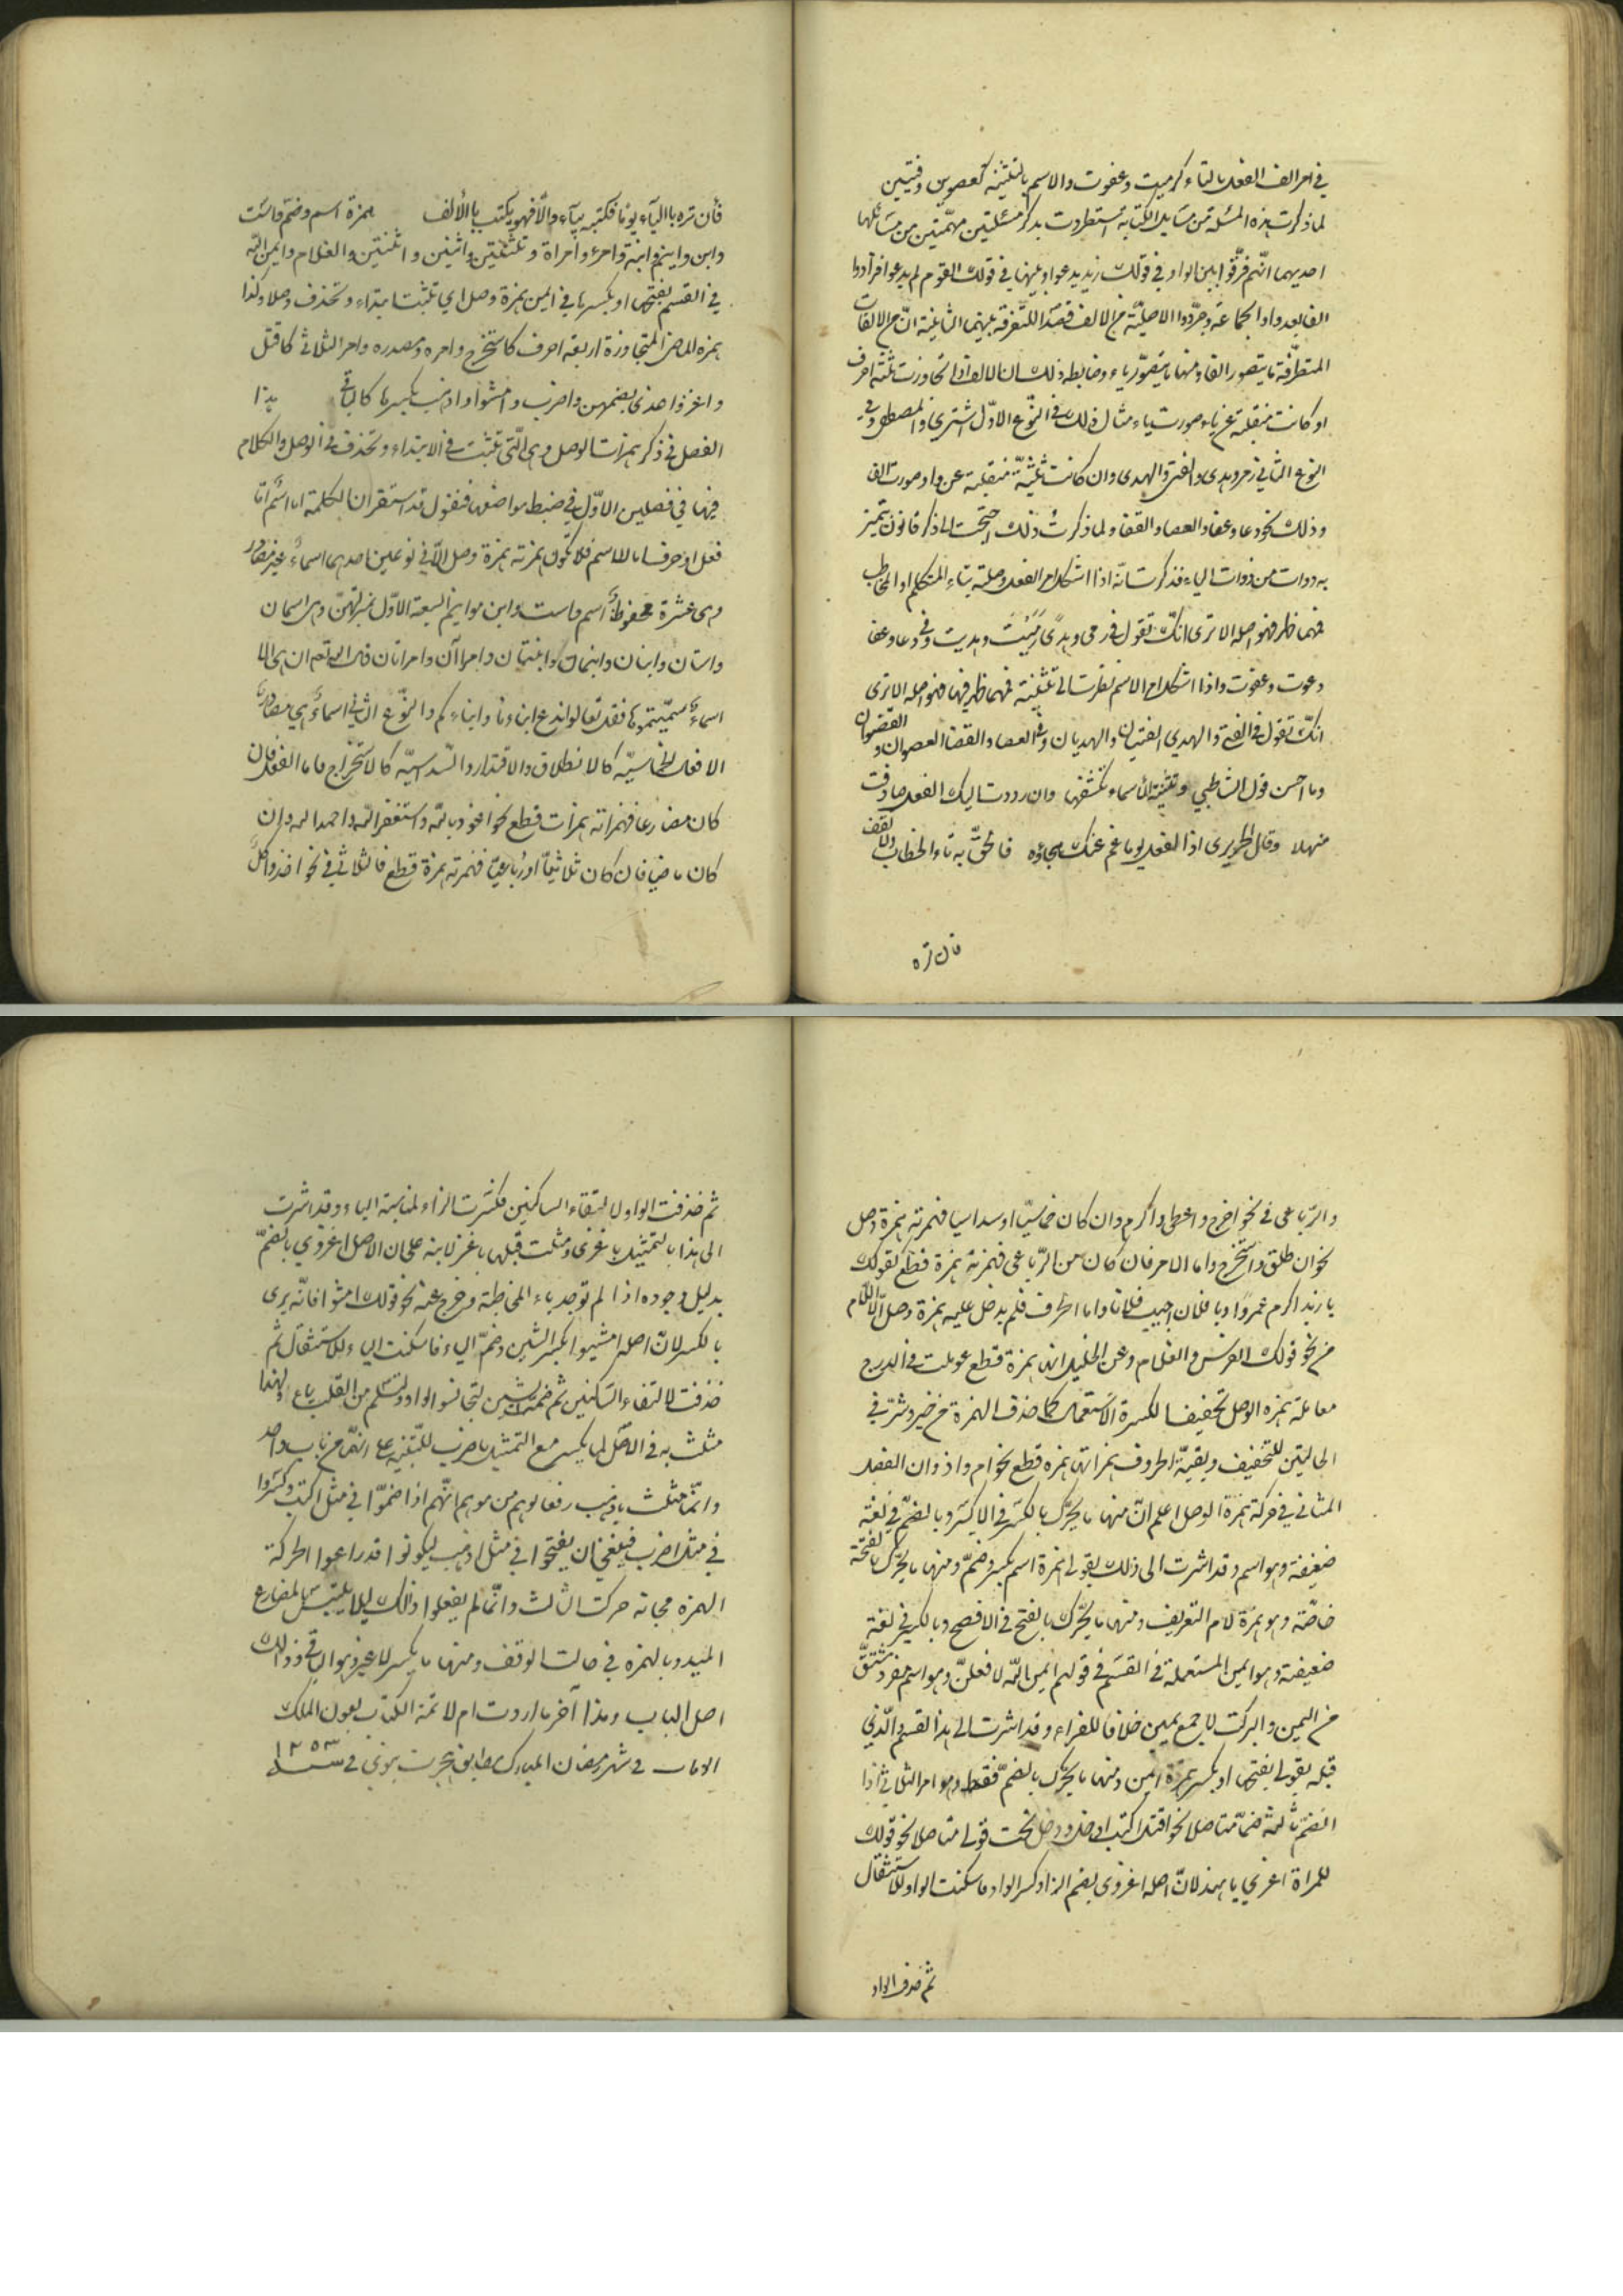 في امر الف الفعل بالتاء كرميت وعفوت والاسم بالتثنية كعصوين وفتيين
لما ذكرت هذه المسئلة من مسايل الكتابة استطردت بذكر مسئلتين مهمتين من مسائلها
احديهما انهم فرقوا بين الواو في قولك زيد يدعو وبينها في قولك القوم لم يدعوا فزادوا
الفا بعد واو الجماعة وجردوا الاصلية من الالف قصدا للتفرقة بينهما الثانية ان من الالفات
المتطرفة ما يتصور الفا ومنها ما يتصور ياء وضابط ذلك ان الالف اذا تجاوزت ثلثة احرف
او كانت منقلبة عن ياء صورت ياء مثال ذلك في النوع الاول اشترى والمصطفى وفي
النوع الثاني رمى وهدى والفتى والهدى وان كانت ثالثة منقلبة عن واو صورت الفا
وذلك نحو دعا وعفا والعصا والقفا ولما ذكرت ذلك احتجت الى ذكر قانون يتميز
به ذوات من ذوات الياء فذكرت انه اذا اشكل امر الفعل وصلته بتاء المتكلم او المخاطب
فمهما ظهر فهو اصله الا ترى انك تقول في رمى وهدى رميت وهديت وفي دعا وعفا
دعوت وعفوت واذا اشكل امر الاسم نظرت الى تثنيته فمهما ظهر فيها فهو اصله الا ترى
انك تقول في الفتى والهدى الفتيان والهديان وفي العصا والقفا العصوان و القفوان
وما احسن قول الشاطبي وتثنية الاسماء تكشفها وان رددت اليك الفعل صادفت
منهلا وقال الحريرى اذا الفعل يوما غم عنك هجاؤه فالحق به تاء الخطاب ولا تقف
فان تره
فأن تره بااليآء يوما فكتبه بيآء والا فهو يكتب باالألف همزة اسم وضم واست
وابن وابنم وابنة وامرء وامراة وتثنيتهن واثنين واثنتين والغلام وايمن الله
في القسم بفتحها او بكسرها في ايمن همزة وصل اي تثبت ابتداء وتحذف وصلا وكذا
همزه الماضى المتجاوزة اربعه احرف كاستخرج وامره ومصدره وامر الثلاثى كاقتل
واغز واغزى بضمهن واضرب وامشوا واذهب بكسر ها كالباقى هذا
الفصل في ذكر همزات الوصل وهى التى تثبت في الابتداء وتحذف في الوصل والكلام
فيها في فصلين الاول في ضبط مواضعها فنقول قد استقر ان الكلمة اما اسم اما
فعل او حرف اما الاسم فلا تكون همزته همزة وصل الا في نوعين احدهما اسماء غير مصادر
وهى عشرة محفوظة اسم واست وابن وابنم السبعة الاول بمنزلتهن وهى اسمان
واستان وابنان وابنمان وابنتان وامرآن وامرأتان قال الله تعم ان هى الا
اسماء سميتموها فقل تعالوا ندع ابناءنا وابناءكم والنوع الثاني اسماء هي مصادر
الافعال الخماسيه كالانطلاق والاقتدار والسداسيه كالاستخراج واما الفعل فان
كان مضارعا فهمزاته همزات قطع نحو اعوذ بالله واستغفر الله واحمد الله وان
كان ماضيا فان كان ثلاثيا او رباعيا فهمزته همزة قطع فالثلاثي في نحو اخذ واكل
والرباعى في نحو اخرج واعطى واكرم وان كان خماسيا او سداسيا فهمزته همزة وصل
نحو انطلق واستخرج واما الامر فان كان من الرباعى فهمزته همزة قطع كقولك
يا زيد اكرم عمروًا ويا فلان اجب فلانا واما الحرف فلم يدخل عليه همزة وصل الا اللام
من نحو قولك الفرس والغلام وعن الخليل انها همزة قطع عوملت في الدرج
معاملة همزه الوصل تخفيفا لكثرة الاستعمال كما حذف الهمزة من خير وشر في
الحالتين للتخفيف وبقية الحروف همزاتها همزه قطع نحو ام واذ وان الفصل
المثانى في حركة همزة الوصل اعلم ان منها ما يحرك بالكسر في الاكثر وبالضم في لغة
ضعيفة وهو اسم وقد اشرت الى ذلك بقولى همزة اسم بكسر وضم ومنها ما يحرك بالفتحة
خاصة وهو همزة لام التعريف ومنها ما يحرك بالفتح في الافصح وبالكسر في لغة
ضعيفة وهو ايمن المستعملة في القسم في قولهم ايمن الله لافعلن وهو اسم مفرد مشتق
من اليمن والبركت لا جمع يمين خلافا للفراء وقد اشرت الى هذا القسم والذي
قبله بقولى بفتحها او بكسر همزة ايمن ومنها ما يحرك بالضم فقط وهو امر الثلاثي اذا
انضم ثالثه ضما متاصلا نحو اقتل اكتب ادخل ودخل تحت قولى متاصلا نحو قولك
للمراة اغزي يا هند لان اصله اغزوى بضم الزاء وكسر الواو فاسكنت الواو للاستثقال
ثم حذف الواو
ثم حذفت الواو لالتقاء الساكنين فكسرت الزاء لمناسبة الياء وقد اشرت
الى هذا بالتمثيل باغزى ومثلت قبلها باغز لابنه على ان الاصل اغزوي بالضم
بدليل وجوده اذا لم توجد ياء المخاطبة وخرج عنه نحو قولك امشوا فانه يرى
بالكسر لان اصله امشيوا بكسر الشين وضم الياء فاسكنت الياء للاستثقال ثم
حذفت لالتقاء الساكنين ثم ضمت الشين لتجانس الواو ولتسلم من القلب ياء ولهذا
مثلث به في الاصل لما يكسر مع التمثيل باضرب للتنبيه على انهما من باب واحد
وانما مثلث باذهب رفعا لوهم من موهم انهم اذا ضموا في مثل اكتب وكسروا
في مثل اضرب فينبغي ان يفتحوا في مثل اذهب ليكونوا قد راعوا الحركة
الهمزه مجانه حركت الثالث وانما لم يفعلوا ذلك ليلا يلتبس بالمضارع
المبدو بالهمزه في حالت الوقف ومنها ما يكسر لا غير وهو الباقى وذلك
اصل الباب وهذا آخر ما اردت ام لائه الكتاب بعون الملك
في شهر رمضان المبارك مطابق هجرت نبوى في سنه ١٢٥٣